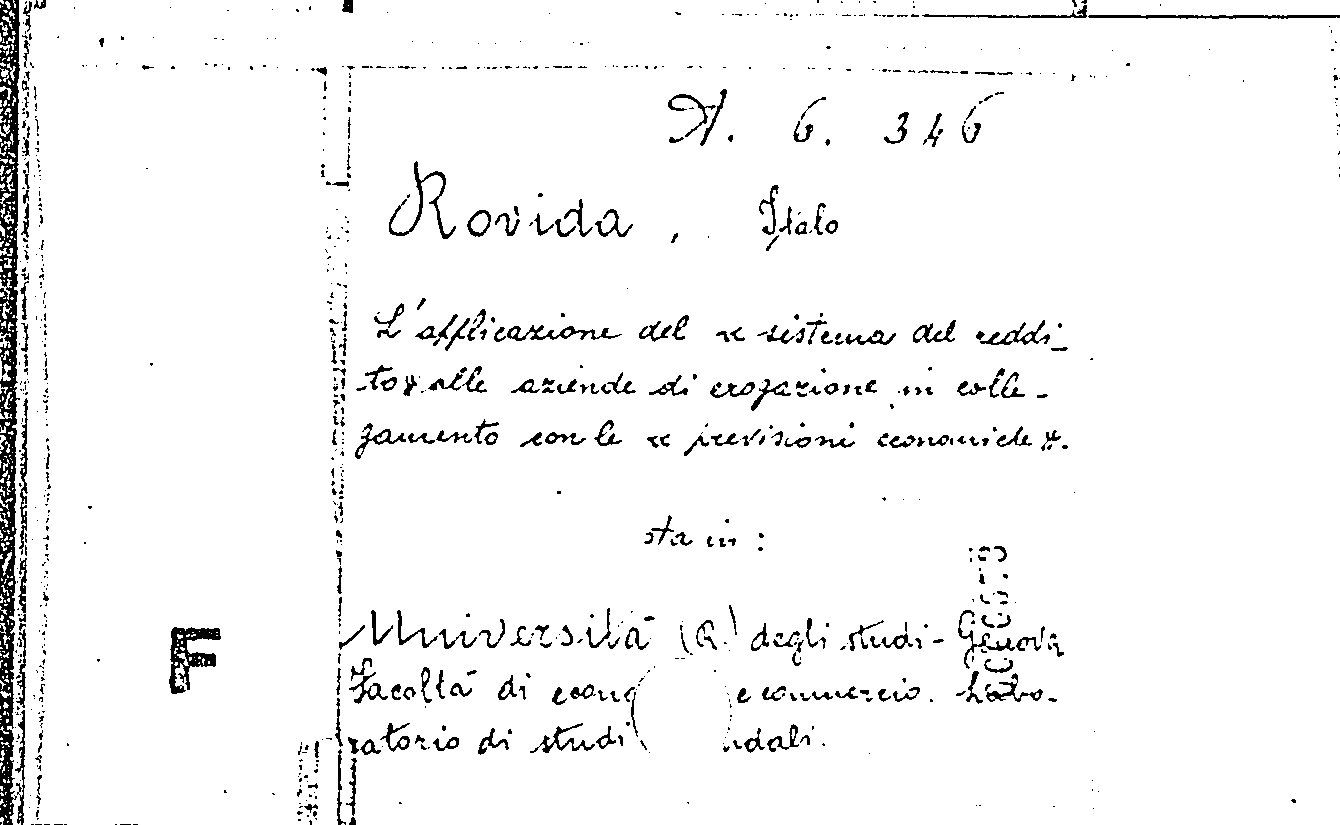 A. 6. 346
Rovida, Italo
L'applicazione del « sistema del reddi-
to » alle aziende di erogazione in colle-
gamento con le « previsioni economiche ».
sta in :
Università (R.) degli studi - Genova
Facoltà di econo e commercio. Labo-
F
ratorio di studi ndali.